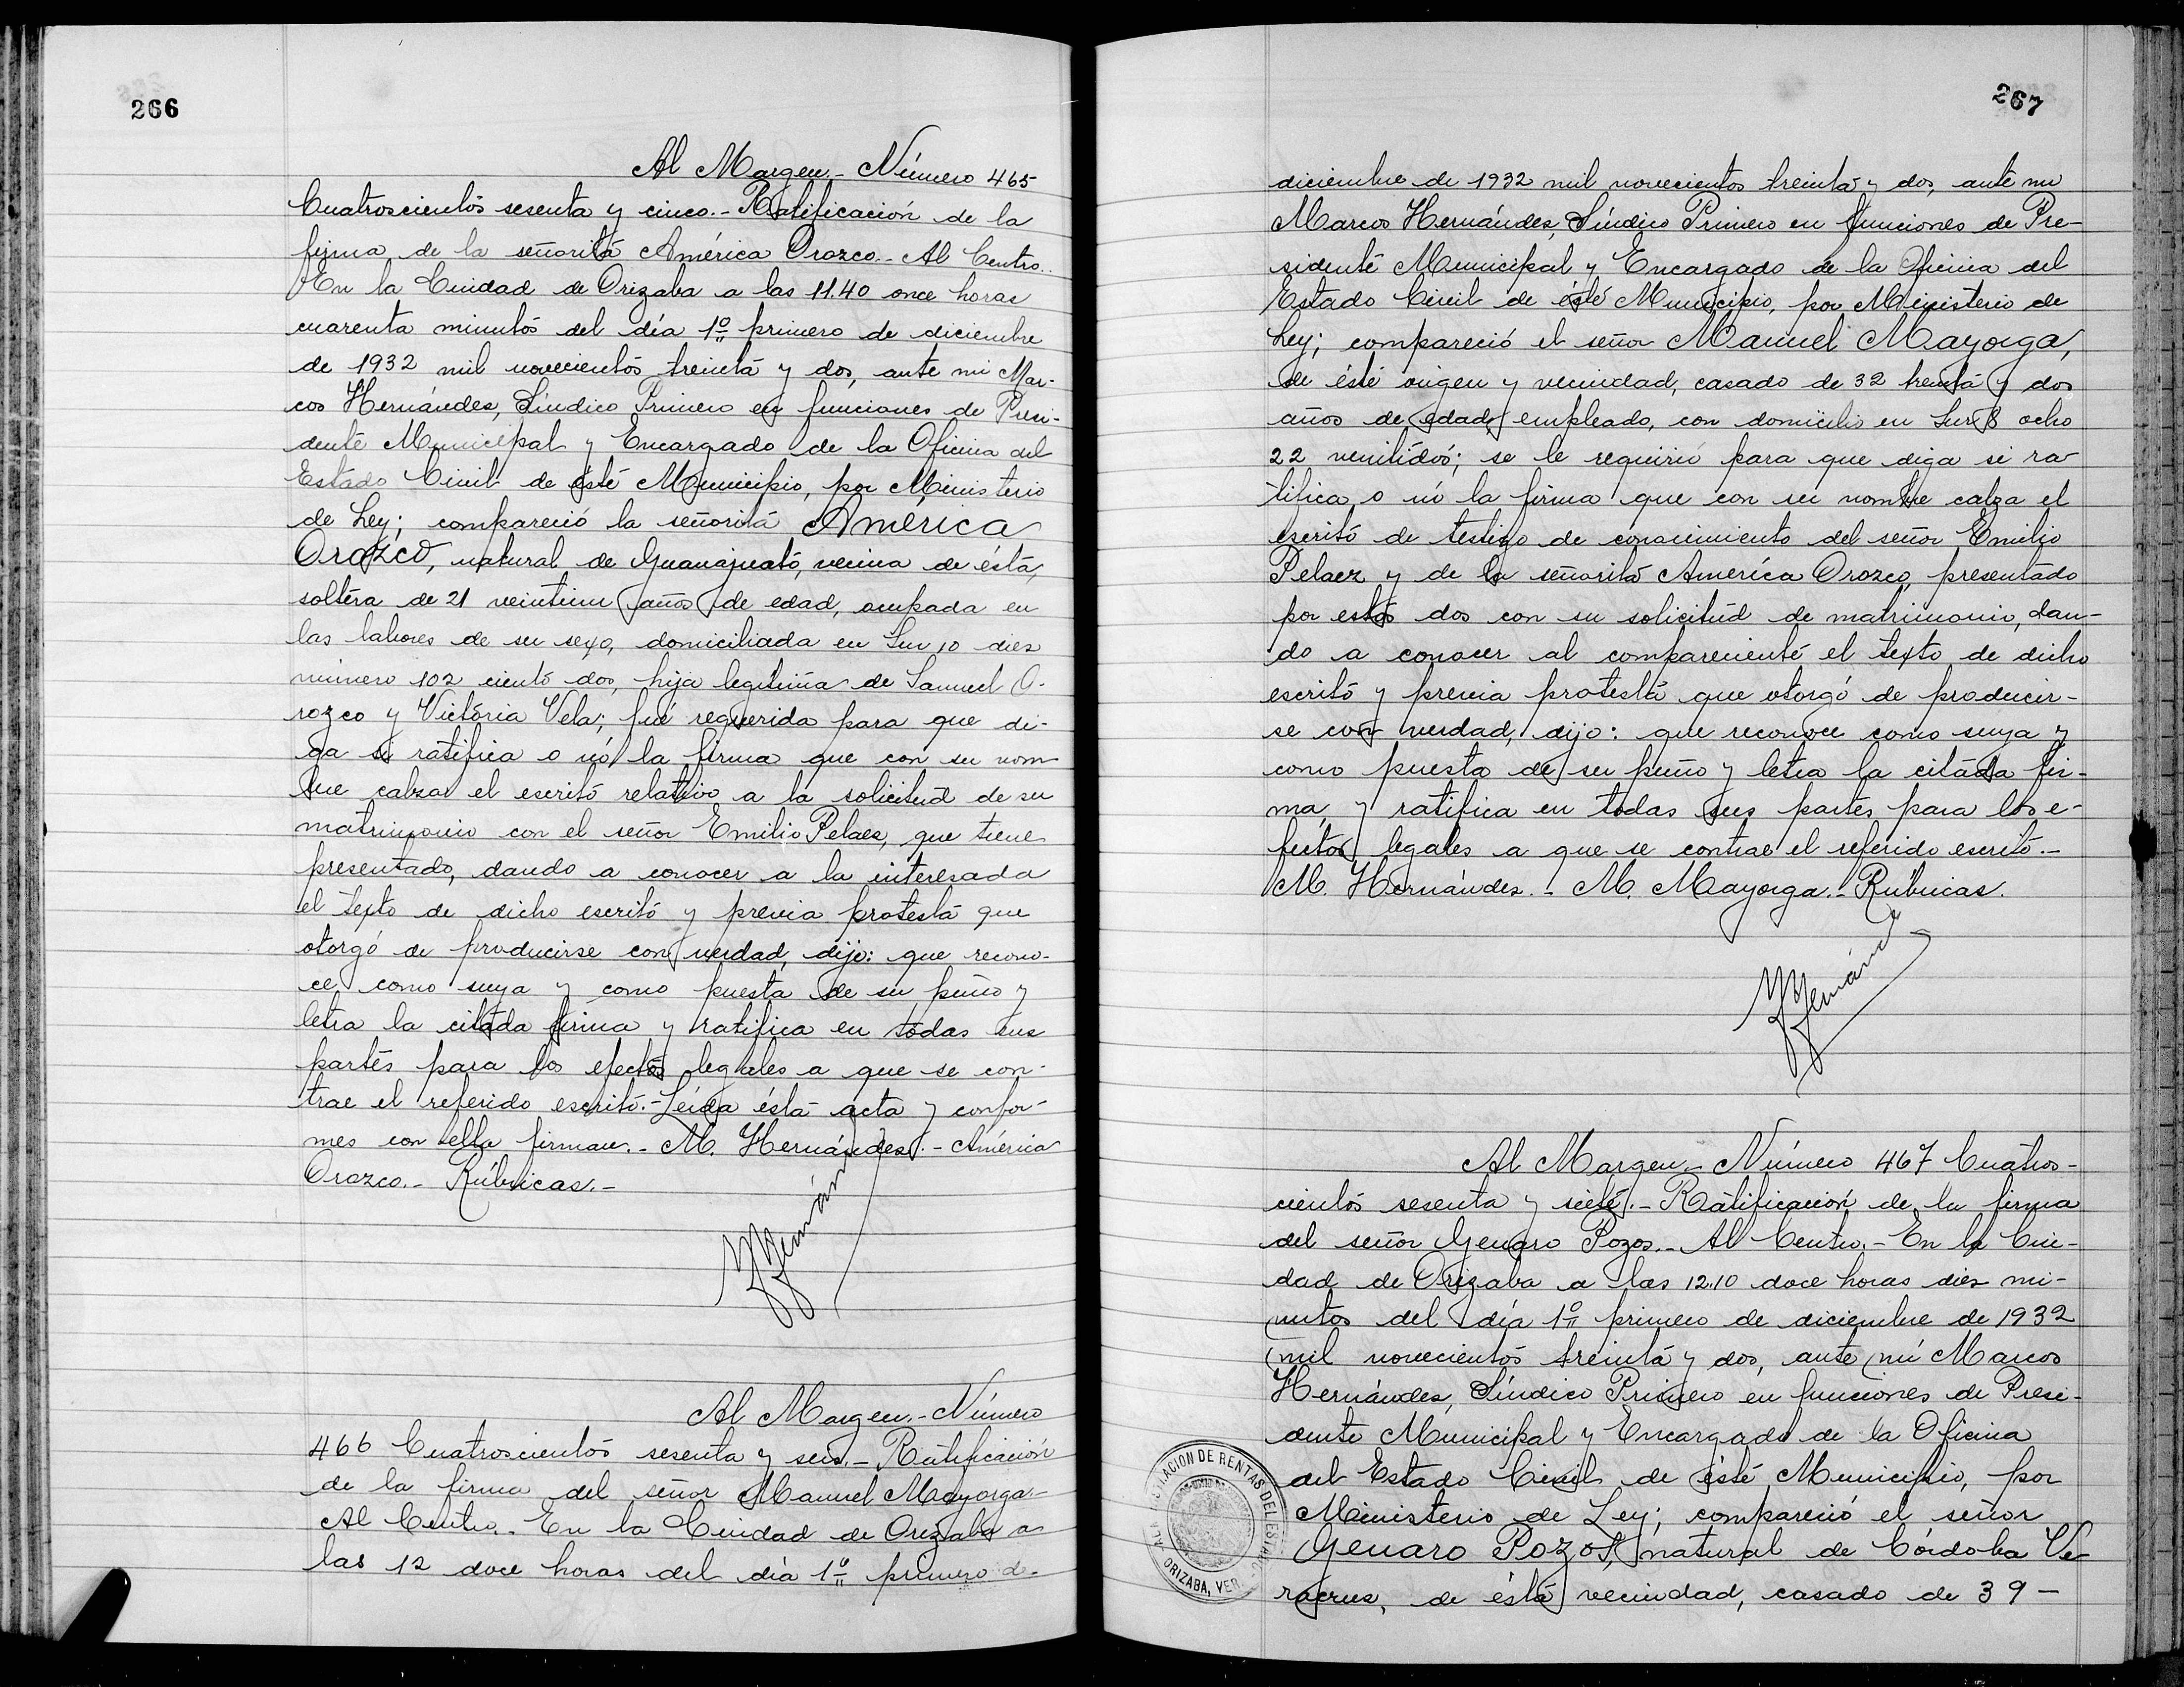 266
Al Margen.- Número 465
Cuatroscientos sesenta y cinco.- Ratificación de la
firma de la señorita América Orozco.- Al Centro.-
En la Ciudad de Orizaba a las 11.40 once horas
cuarenta minutos del día 1º primero de diciembre
de 1932 mil novecientos treinta y dos, ante mi Mar-
cos Hernández, Síndico Primero en funciones de Presi-
dente Municipal y Encargado de la Oficina del
Estado Civil de éste Municipio, por Ministerio
de Ley; compareció la señorita América
Orozco, natural de Guanajuato, vecina de ésta,
soltera de 21 veintiun años de edad, ocupada en
las labores de su sexo, domiciliada en Sur 10 diez
número 102 ciento dos, hija legitima de Samuel O-
rozco y Victoria Vela; fué requerida para que di-
ga si ratifica o nó la firma que con su nom-
bre calza el escrito relativo a la solicitud de su
matrimonio con el señor Emilio Pelaez, que tiene
presentado, dando a conocer a la interesada
el texto de dicho escrito y previa protesta que
otorgó de producirse con verdad, dijo: que recono-
ce como suya y como puesta de su puño y
letra la citada firma y ratifica en todas sus
partes para los efectos legales a que se con-
trae el referido escrito.- Leída ésta acta y confor-
mes con ella firman.- M. Hernández.- América
Orozco.- Rúbricas.-
Al Margen.- Número
466 Cuatroscientos sesenta y seis.- Ratificación
de la firma del señor Manuel Mayorga-
Al Centro.- En la Ciudad de Orizaba a
las 12 doce horas del día 1º primero de
267
diciembre de 1932 mil novecientos treinta y dos, ante mi
Marcos Hernández, Síndico Primero en funciones de Pre-
sidente Municipal y Encargado de la Oficina del
Estado Civil de éste Municipio, por Ministerio de
Ley; compareció el señor Manuel Mayorga,
de éste origen y vecindad, casado de 32 treinta y dos
años de edad, empleado, con domicilio en Sur 8 ocho
22 veintidós; se le requirió para que diga si ra-
tifica o nó la firma que con su nombre calza el
escrito de testigo de conocimiento del señor Emilio
Pelaez y de la señorita América Orozco, presentado
por estos dos con su solicitud de matrimonio, dan-
do a conocer al compareciente el texto de dicho
escrito y previa protesta que otorgó de producir-
se con verdad, dijo: que reconoce como suya y
como puesta de su puño y letra la citada fir-
ma, y ratifica en todas sus partes para los e-
fectos legales a que se contrae el referido escrito.-
M. Hernández.- M. Mayorga.- Rúbricas.
Al Margen.- Número 467 Cuatros-
cientos sesenta y siete.- Ratificación de la firma
del señor Genaro Pozos.- Al Centro.- En la Ciu-
dad de Orizaba a las 12.10 doce horas diez mi-
nutos del día 1º primero de diciembre de 1932
mil novecientos treinta y dos, ante mi Marcos
Hernández, Síndico Primero en funciones de Presi-
dente Municipal y Encargado de la Oficina
del Estado Civil de éste Municipio, por
Ministerio de Ley; compareció el señor
Genaro Pozos, natural de Córdoba Ve-
racruz, de ésta vecindad, casado de 39-
RENTAS DEL ESTADO
ORIZABA, VER.